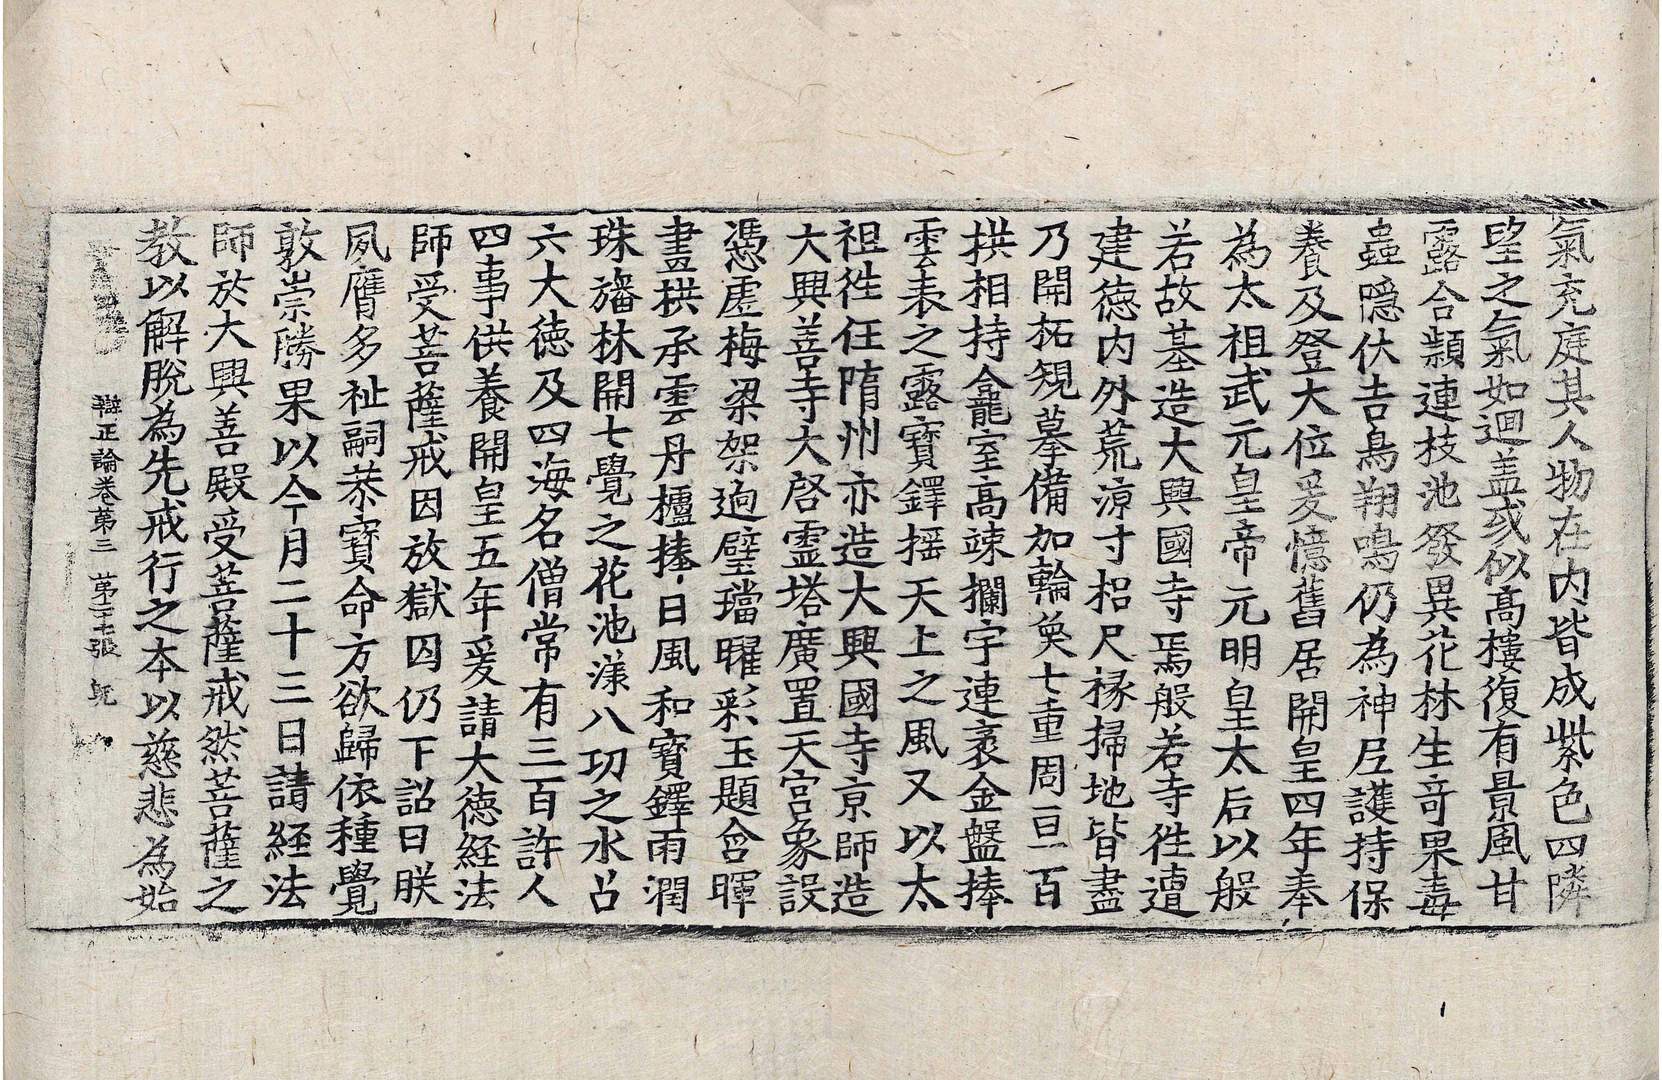 氣充庭其人物在內皆成紫色四隣
望之氣如迴盖或似髙樓復有景風甘
露合頴連枝池發異花林生竒果毒
蟲隱伏吉鳥翔鳴仍為神尼護持保
養及登大位爰憶舊居開皇四年奉
為太祖武元皇帝元明皇太后以般
若故基造大興國寺焉般若寺徃遭
建德內外荒凉寸梠尺椽掃地皆盡
乃開拓規摹備加輪奐七重周亘百
拱相持龕室高竦欄宇連袤金盤捧
雲表之露寶鐸揺天上之風又以太
祖徃任隋州亦造大興國寺京師造
大興善寺大啓靈塔廣置天宮象設
憑虛梅梁架逈璧璫曜彩玉題含暉
畫栱承雲丹櫨捧日風和寶鐸雨潤
珠旛林開七覺之花池漾八功之水召
六大德及四海名僧常有三百許人
四事供養開皇五年爰請大德経法
師受菩薩戒因放獄囚仍下詔曰朕
夙膺多祉嗣恭寶命方欲歸依種覺
敦崇勝果以今月二十三日請経法
師於大興善殿受菩薩戒然菩薩之
教以解脫為先戒行之本以慈悲為始
辯正論卷第三 第二十七張 旣